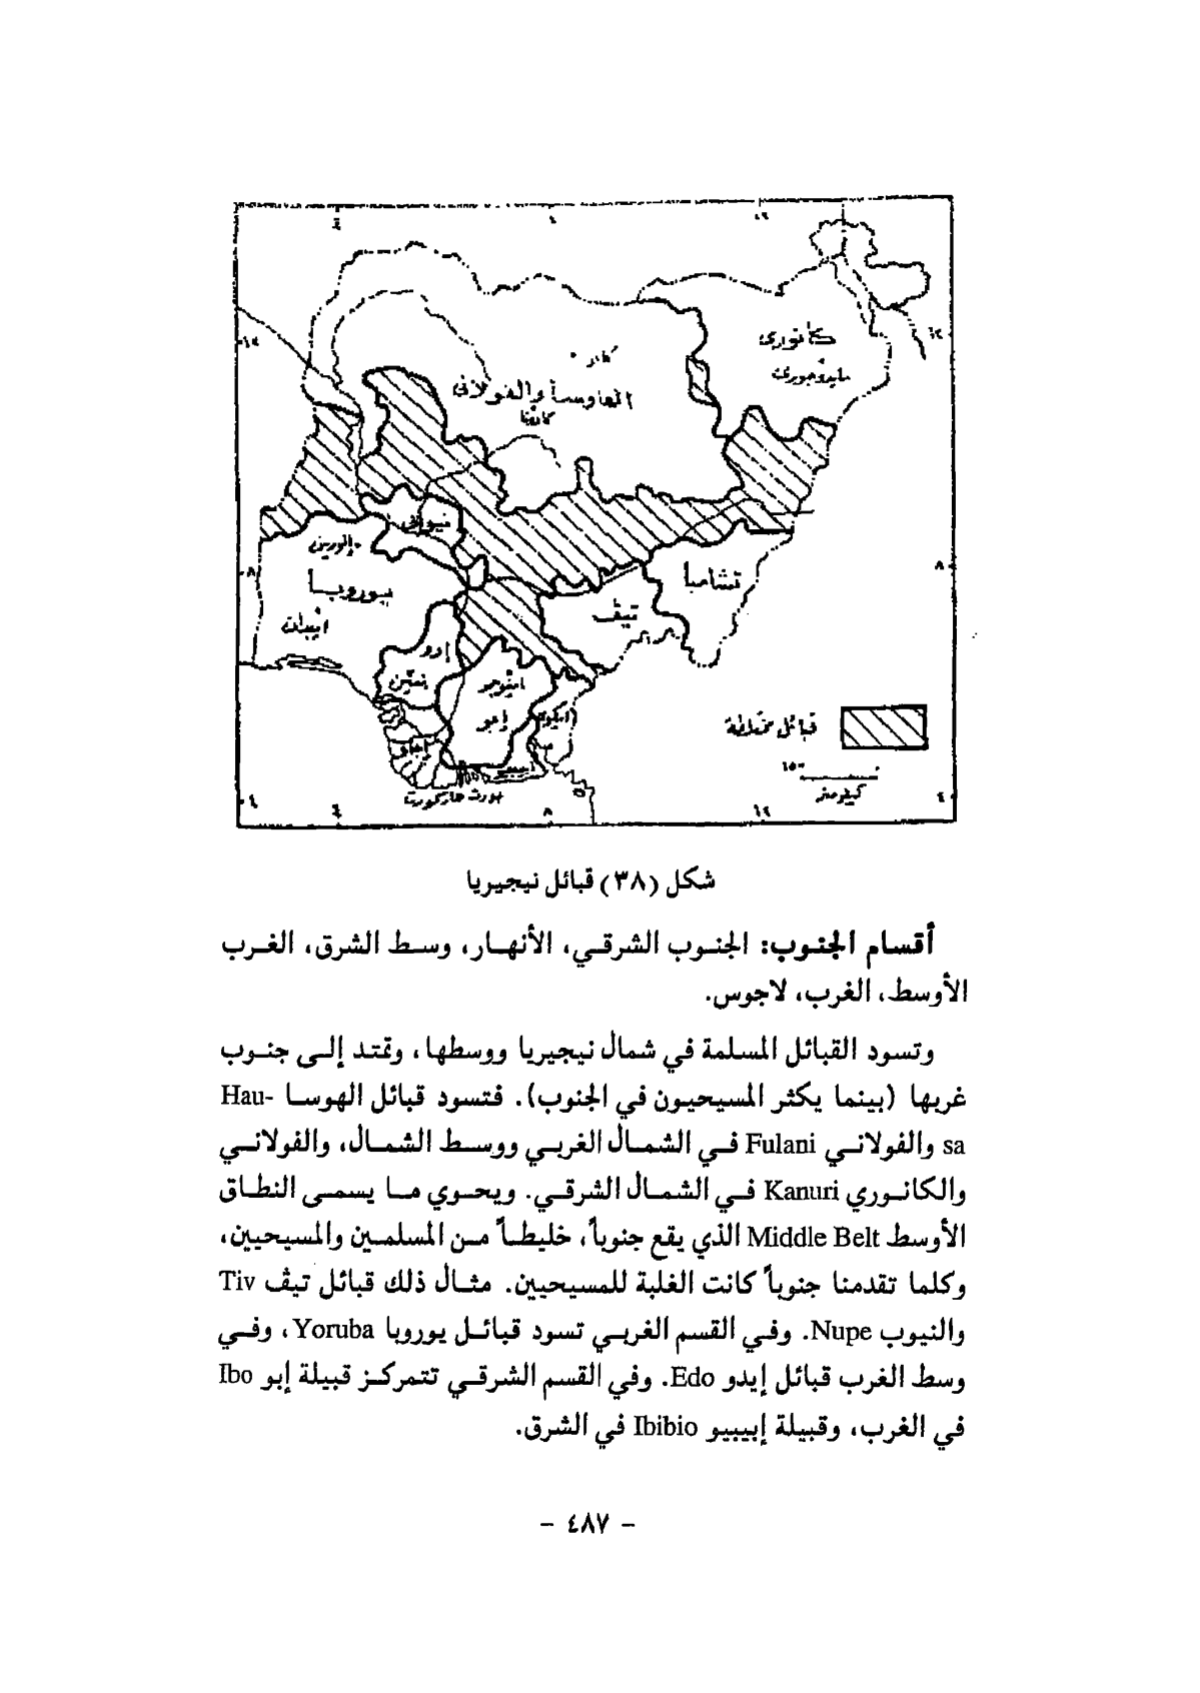 ٤
٨
١٢
كانوري
مايدوجوري
١٢
١٢
كانو
الهاوسا والفولاني
كادونا
إلورين
٨
٨
تشامبا
يوروبا
تيڤ
إيبدان
إدو
بنين
قبائل مختلطة
إيجاو
١٥٠
كيلومتر
بورت هاركورت
٤
٤
٨
١٢
شكل (٣٨) قبائل نيجيريا
أقسام الجنوب: الجنوب الشرقي، الأنهار، وسط الشرق، الغرب
الأوسط، الغرب، لاجوس.
وتسود القبائل المسلمة في شمال نيجيريا ووسطها، وتمتد إلى جنوب
غربها (بينما يكثر المسيحيون في الجنوب). فتسود قبائل الهوسا Hau-
sa والفولاني Fulani في الشمال الغربي ووسط الشمال، والفولاني
والكانوري Kanuri في الشمال الشرقي. ويحوي ما يسمى النطاق
الأوسط Middle Belt الذي يقع جنوباً، خليطاً من المسلمين والمسيحيين،
وكلما تقدمنا جنوباً كانت الغلبة للمسيحيين. مثال ذلك قبائل تيڤ Tiv
والنيوب Nupe. وفي القسم الغربي تسود قبائل يوروبا Yoruba، وفي
وسط الغرب قبائل إيدو Edo. وفي القسم الشرقي تتمركز قبيلة إبو Ibo
في الغرب، وقبيلة إبيبيو Ibibio في الشرق.
- ٤٨٧ -